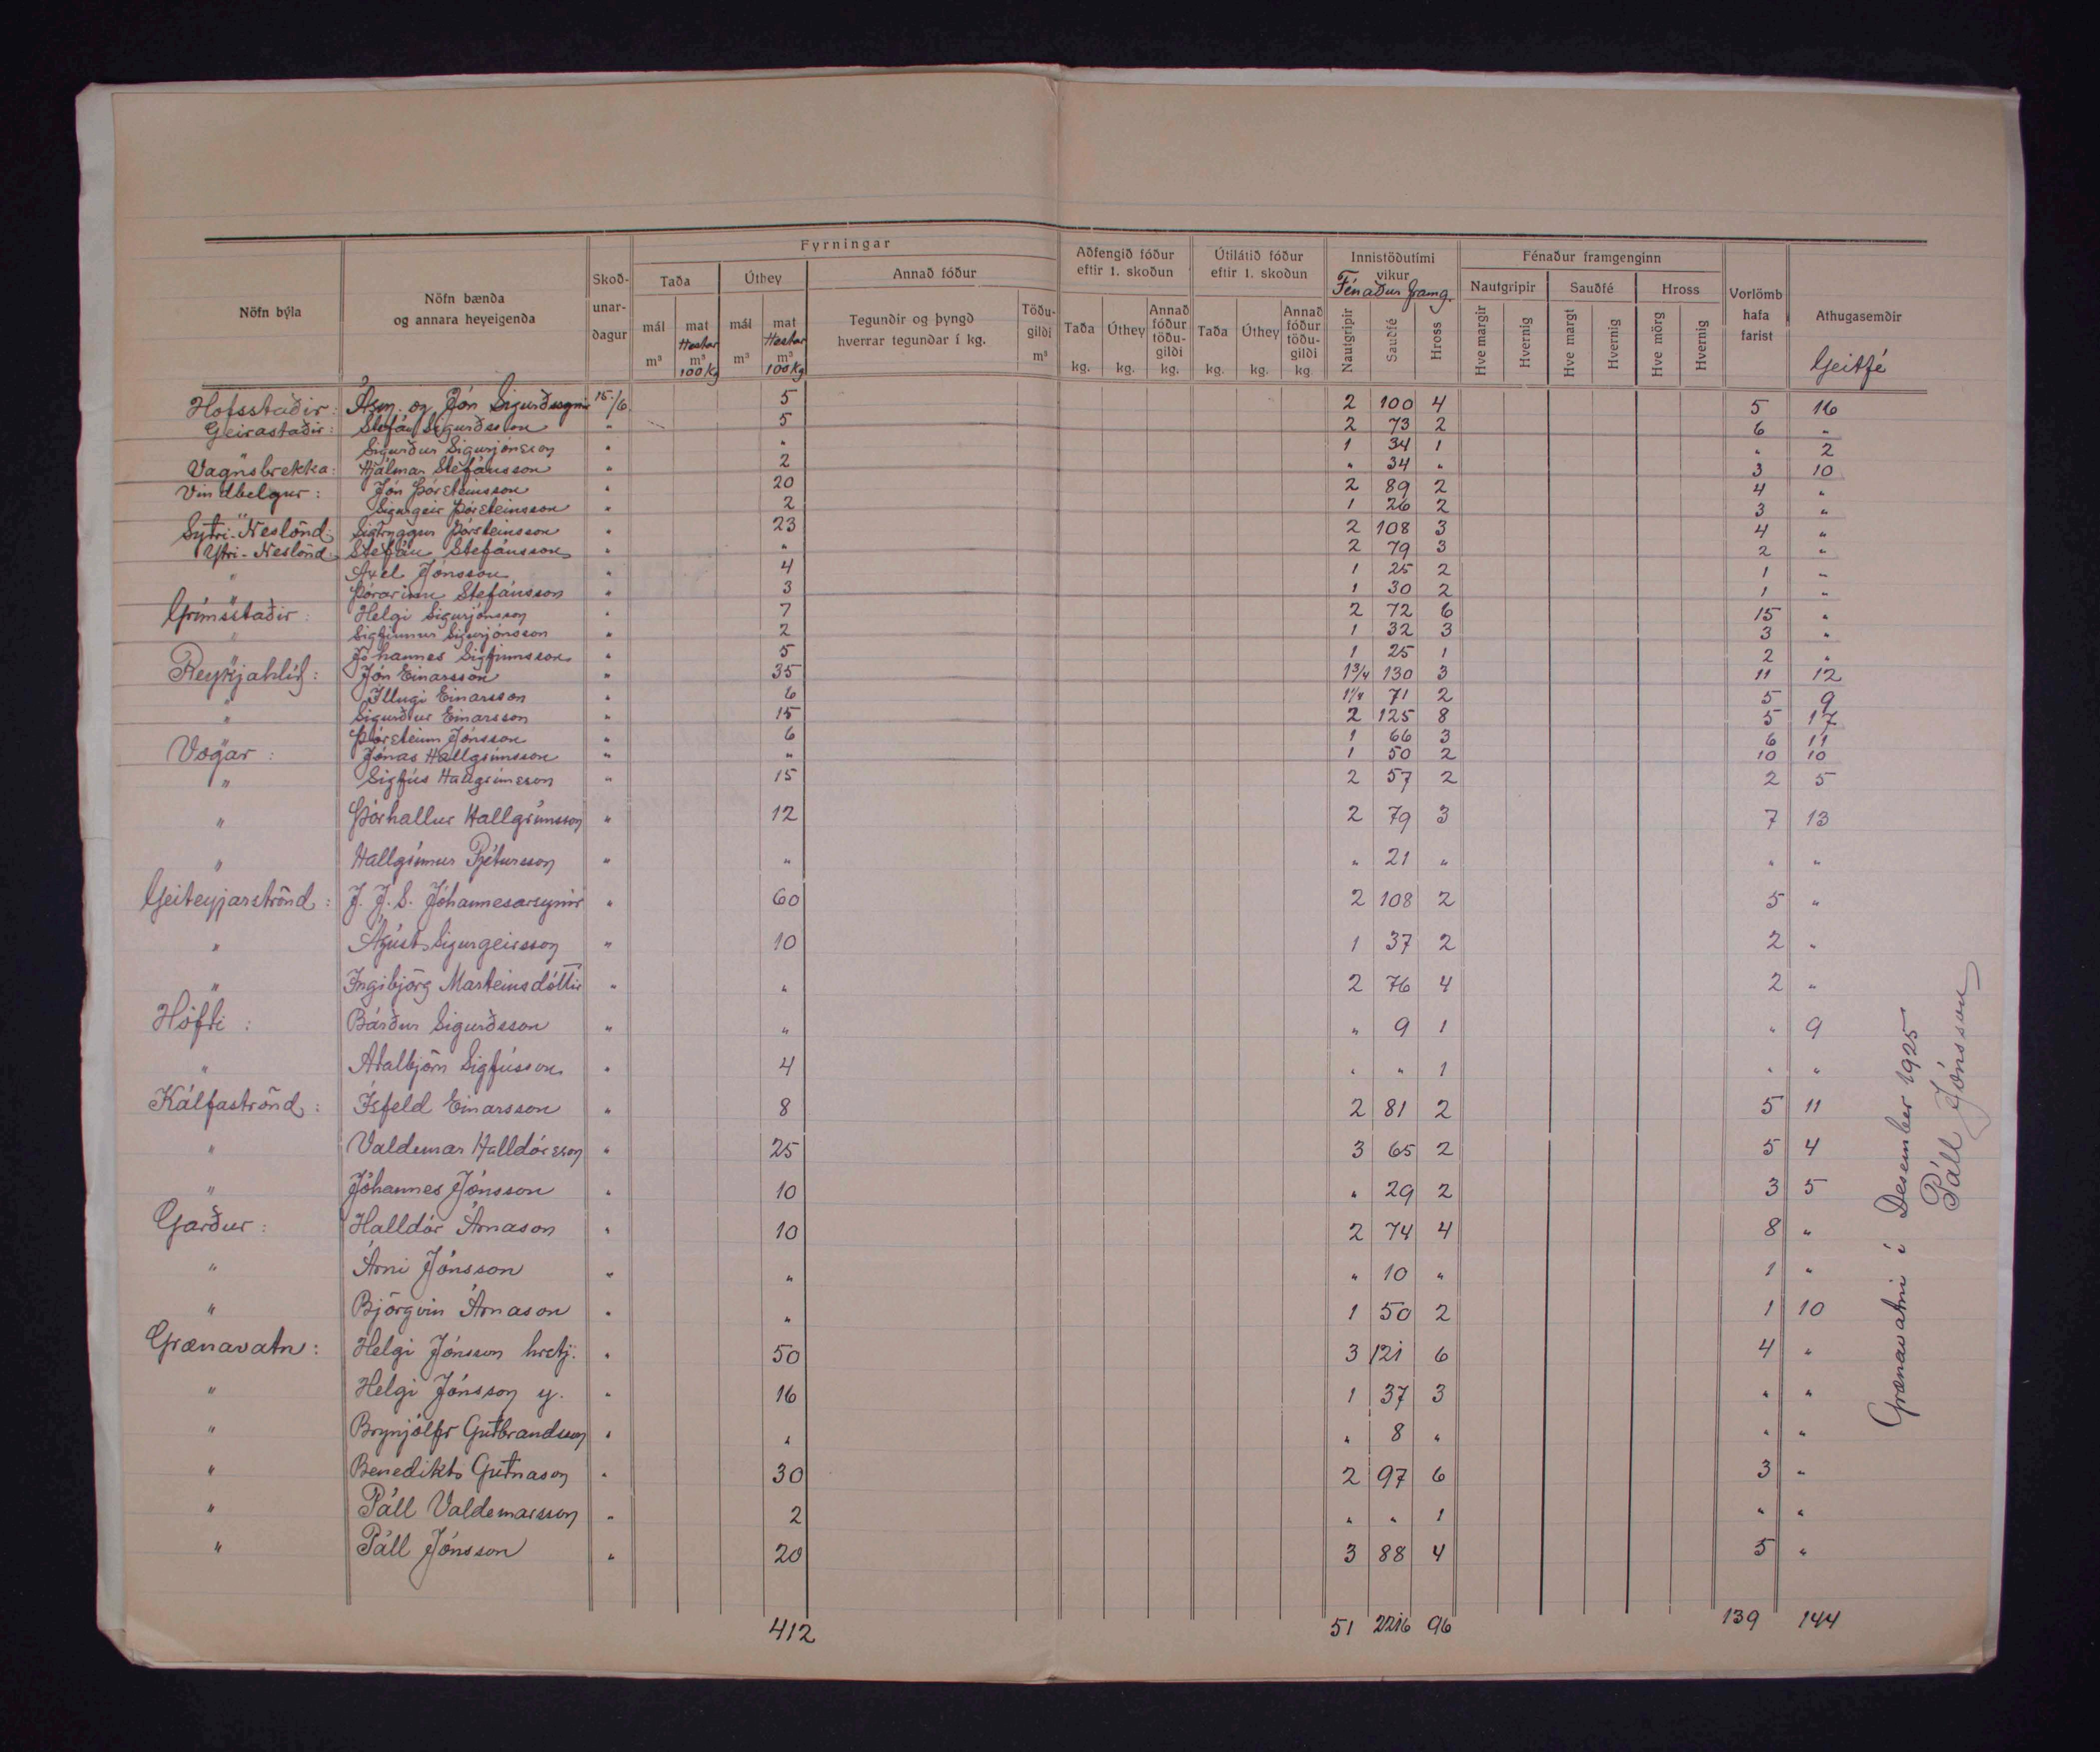 Fyrningar
Aðfengið fóður eftir 1. skoðun
Útilátið fóður eftir 1. skoðun
Innistöðutími vikur
Fénaður framg.
Fénaður framgenginn
Nöfn býla
Nöfn bænda og annara heyeigenda
Skoð-unar-dagur
Taða
Úthey
Annað fóður
Nautgripir
Sauðfé
Hross
Vorlömb hafa farist
Athugasemdir
Geitfé
mál m³
mat Hestar m³ 100 kg
mál m³
mat Hestar m³ 100 kg
Tegundir og þyngd hverrar tegundar í kg.
Töðu-gildi m³
Taða kg.
Úthey kg.
Annað fóður töðu-gildi kg.
Taða kg.
Úthey kg.
Annað fóður töðu-gildi kg
Nautgripir
Sauðfé
Hross
Hve margir
Hvernig
Hve margt
Hvernig
Hve mörg
Hvernig
Hofsstaðir: Ásm. og Jón Sigurðssynir 15./6. 5 2 100 4 5 16
Geirastaðir: Stefán Sigurðsson " 5 2 73 2 6 "
" Sigurður Sigurjónsson " " 1 34 1 " 2
Vagnsbrekka: Hjálmar Stefánsson " 2 " 34 " 3 10
Vindbelgur: Jón Þórsteinsson " 20 2 89 2 4 "
" Sigurgeir Þórsteinsson " 2 1 26 2 3 "
Sytri-Neslönd: Sigtryggur Þórsteinsson " 23 2 108 3 4 "
Ytri-Neslönd: Stefán Stefánsson " " 2 79 3 2 "
" Axel Jónsson " 4 1 25 2 1 "
" Þórarinn Stefánsson " 3 1 30 2 1 "
Grímsstaðir: Helgi Sigurjónsson " 7 2 72 6 15 "
" Sigfinnur Sigurjónsson " 2 1 32 3 3 "
" Jóhannes Sigfinnsson " 5 1 25 1 2 "
Reykjahlíð: Jón Einarsson " 35 1¾ 130 3 11 12
" Illugi Einarsson " 6 1¼ 71 2 5 9
" Sigurður Einarsson " 15 2 125 8 5 17
" Þórsteinn Jónsson " 6 1 66 3 6 11
Vogar: Jónas Hallgrímsson " " 1 50 2 10 10
" Sigfús Hallgrímsson " 15 2 57 2 2 5
" Þórhallur Hallgrímsson " 12 2 79 3 7 13
" Hallgrímur Pjétursson " " " 21 " " "
Geiteyjarströnd: J. J. S. Jóhannesarsynir " 60 2 108 2 5 "
" Ágúst Sigurgeirsson " 10 1 37 2 2 "
" Ingibjörg Marteinsdóttir " " 2 76 4 2 "
Höfði: Bárður Sigurðsson " " " 9 1 " 9
" Aðalbjörn Sigfússon " 4 " " 1 " "
Kálfaströnd: Ísfeld Einarsson " 8 2 81 2 5 11
" Valdemar Halldórsson " 25 3 65 2 5 4
" Jóhannes Jónsson " 10 " 29 2 3 5
Garður: Halldór Árnason " 10 2 74 4 8 "
" Árni Jónsson " " " 10 " 1 "
" Björgvin Árnason " " 1 50 2 1 10
Grænavatn: Helgi Jónsson hrstj. " 50 3 121 6 4 "
" Helgi Jónsson y. " 16 1 37 3 " "
" Brynjólfr Guðbrandsson " " " 8 " " "
" Benedikt Guðnason " 30 2 97 6 3 "
" Páll Valdemarsson " 2 " " 1 " "
" Páll Jónsson " 20 3 88 4 5 "
412 51 2216 96 139 144
Grænavatni í Desember 1925
Páll Jónsson